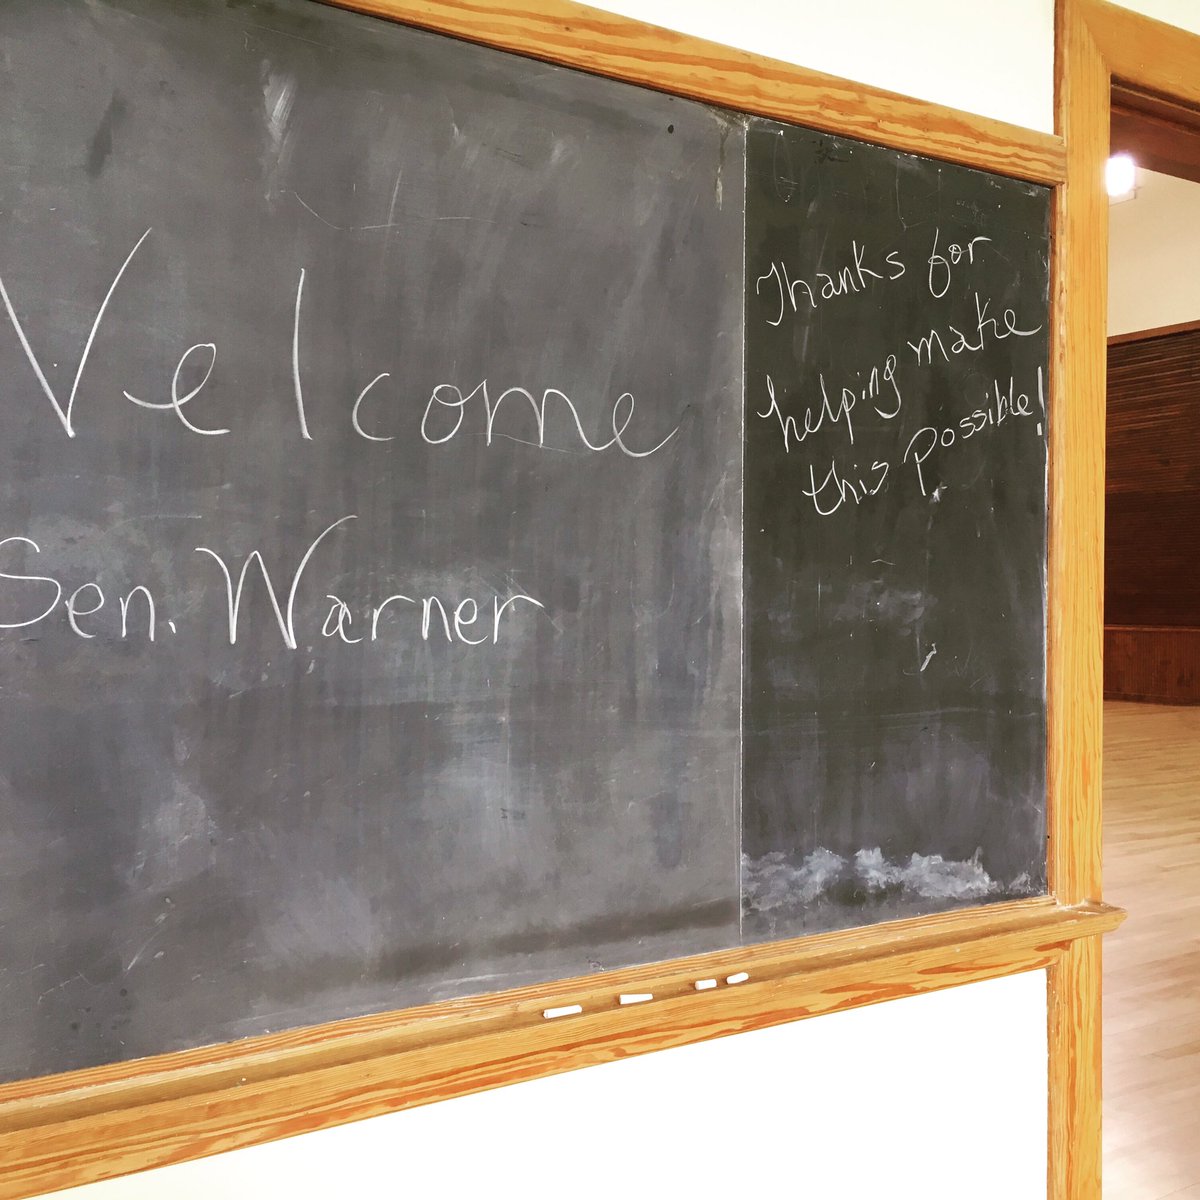 Welcome
Sen. Warner
Thanks for
helping make
this possible!